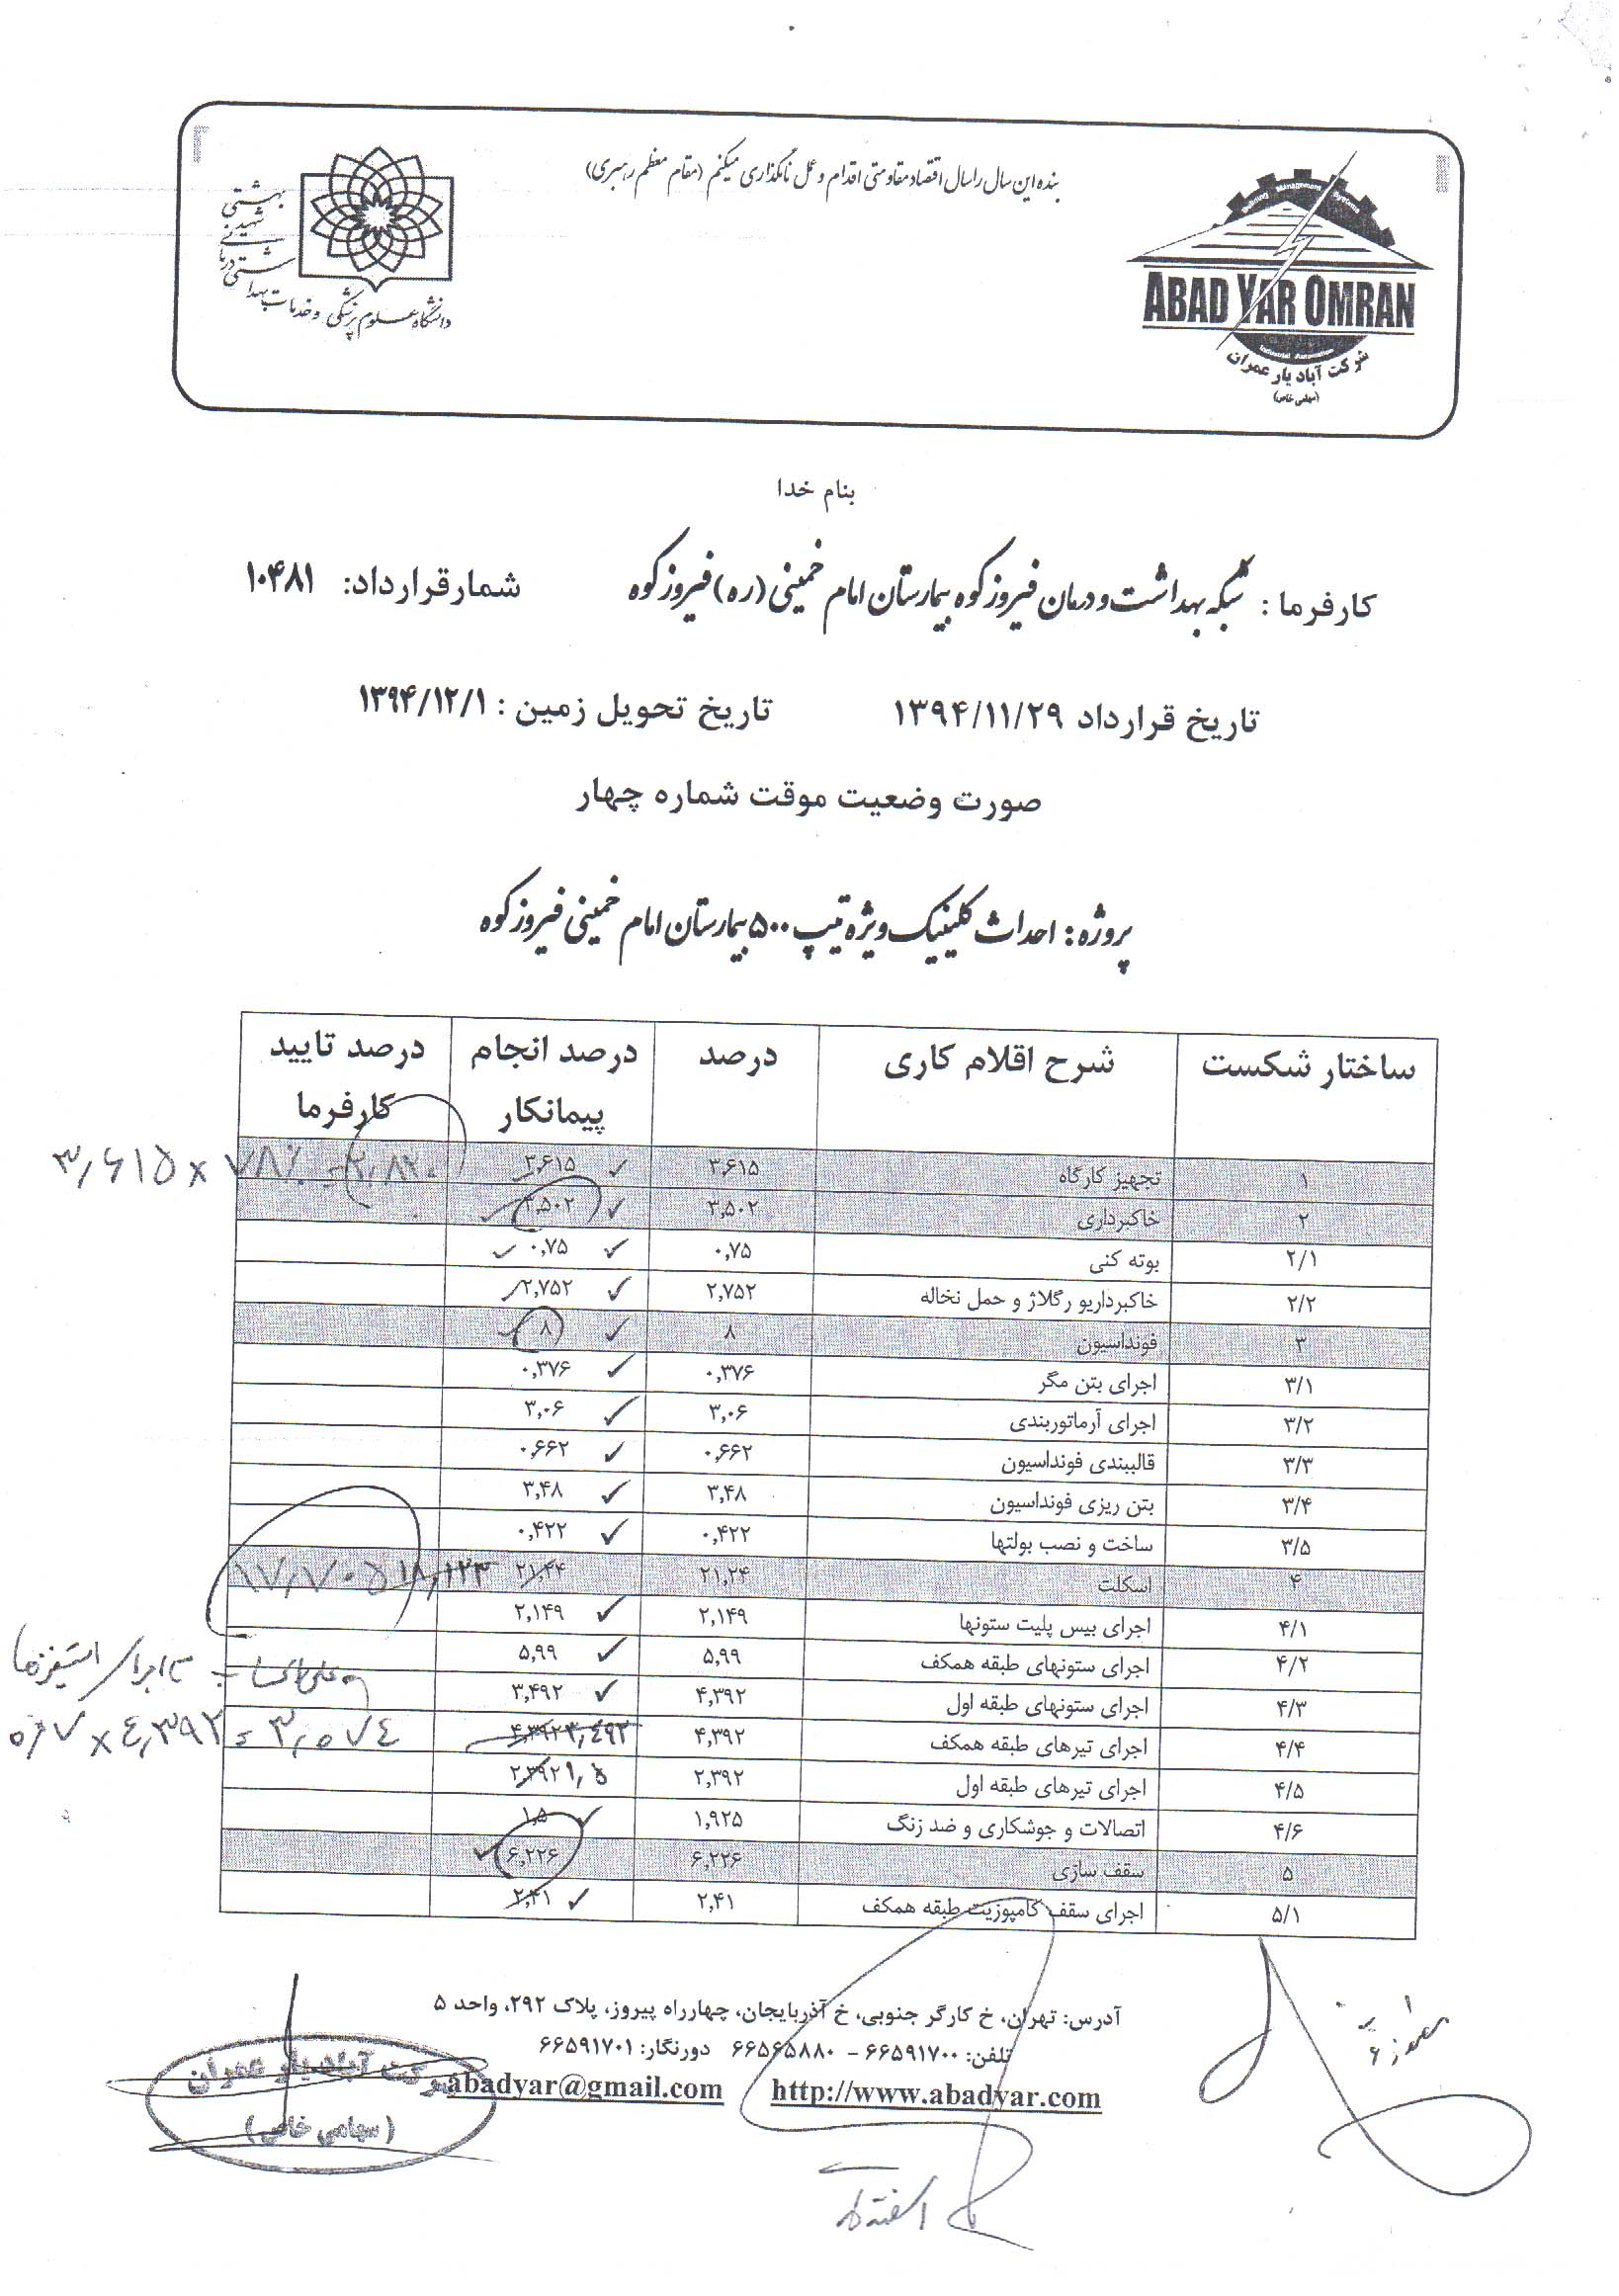 بنده این سال را سال اقتصاد مقاومتی اقدام و عمل نامگذاری میکنم (مقام معظم رهبری)
دانشگاه علوم پزشکی و خدمات بهداشتی درمانی شهید بهشتی
Building Management Systems
ABAD YAR OMRAN
Industrial Automation
شرکت آباد یار عمران
(سهامی خاص)
بنام خدا
کارفرما : شبکه بهداشت و درمان فیروزکوه بیمارستان امام خمینی (ره) فیروزکوه شمارقرارداد: ۱۰۴۸۱
تاریخ قرارداد ۱۳۹۴/۱۱/۲۹ تاریخ تحویل زمین : ۱۳۹۴/۱۲/۱
صورت وضعیت موقت شماره چهار
پروژه : احداث کلینیک ویژه تیپ ۵۰۰ بیمارستان امام خمینی فیروزکوه
ساختار شکست شرح اقلام کاری درصد درصد انجام پیمانکار درصد تایید کارفرما
۱ تجهیز کارگاه ۳,۶۱۵ ۳,۶۱۵ ✓ ۳,۶۱۵ × ۷۸٪ = ۲,۸۲۰
۲ خاکبرداری ۳,۵۰۲ ۳,۵۰۲ ✓
۲/۱ بوته کنی ۰,۷۵ ۰,۷۵ ✓
۲/۲ خاکبرداریو رگلاژ و حمل نخاله ۲,۷۵۲ ۲,۷۵۲ ✓
۳ فونداسیون ۸ ۸ ✓
۳/۱ اجرای بتن مگر ۰,۳۷۶ ۰,۳۷۶ ✓
۳/۲ اجرای آرماتوربندی ۳,۰۶ ۳,۰۶ ✓
۳/۳ قالببندی فونداسیون ۰,۶۶۲ ۰,۶۶۲ ✓
۳/۴ بتن ریزی فونداسیون ۳,۴۸ ۳,۴۸ ✓
۳/۵ ساخت و نصب بولتها ۰,۴۲۲ ۰,۴۲۲ ✓
۴ اسکلت ۲۱,۲۴ ۲۱,۲۴ ۱۸,۱۲۳ ۱۷,۷۰۵
۴/۱ اجرای بیس پلیت ستونها ۲,۱۴۹ ۲,۱۴۹ ✓
۴/۲ اجرای ستونهای طبقه همکف ۵,۹۹ ۵,۹۹ ✓
۴/۳ اجرای ستونهای طبقه اول ۴,۳۹۲ ۳,۴۹۲ ✓
اجرای استیفنرها
۴/۴ اجرای تیرهای طبقه همکف ۴,۳۹۲ ۴,۳۹۲ ۳,۴۹۲ ۰٫۷ × ۴,۳۹۲ = ۳,۰۷۴
۴/۵ اجرای تیرهای طبقه اول ۲,۳۹۲ ۲,۳۹۲ ۱,۵
۴/۶ اتصالات و جوشکاری و ضد زنگ ۱,۹۲۵ ۱,۵ ✓
۵ سقف سازی ۶,۲۲۶ ۶,۲۲۶ ✓
۵/۱ اجرای سقف کامپوزیت طبقه همکف ۲,۴۱ ۲,۴۱ ✓
آدرس: تهران، خ کارگر جنوبی، خ آذربایجان، چهارراه پیروز، پلاک ۲۹۲، واحد ۵
تلفن: ۶۶۵۹۱۷۰۰ - ۶۶۵۶۵۸۸۰ دورنگار: ۶۶۵۹۱۷۰۱
abadyar@gmail.com http://www.abadyar.com
شرکت آباد یار عمران
(سهامی خاص)